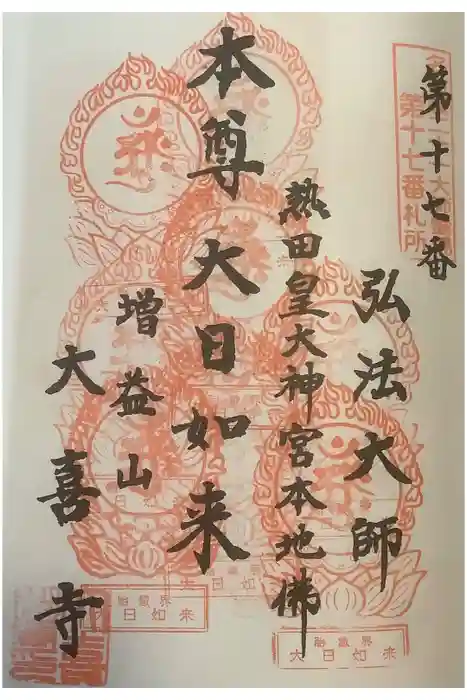 第十七番
第十七番札所
弘法大師
熱田皇大神宮本地佛
本尊大日如来
増益山
大喜寺
胎蔵界
大日如来
胎蔵界
大日如来